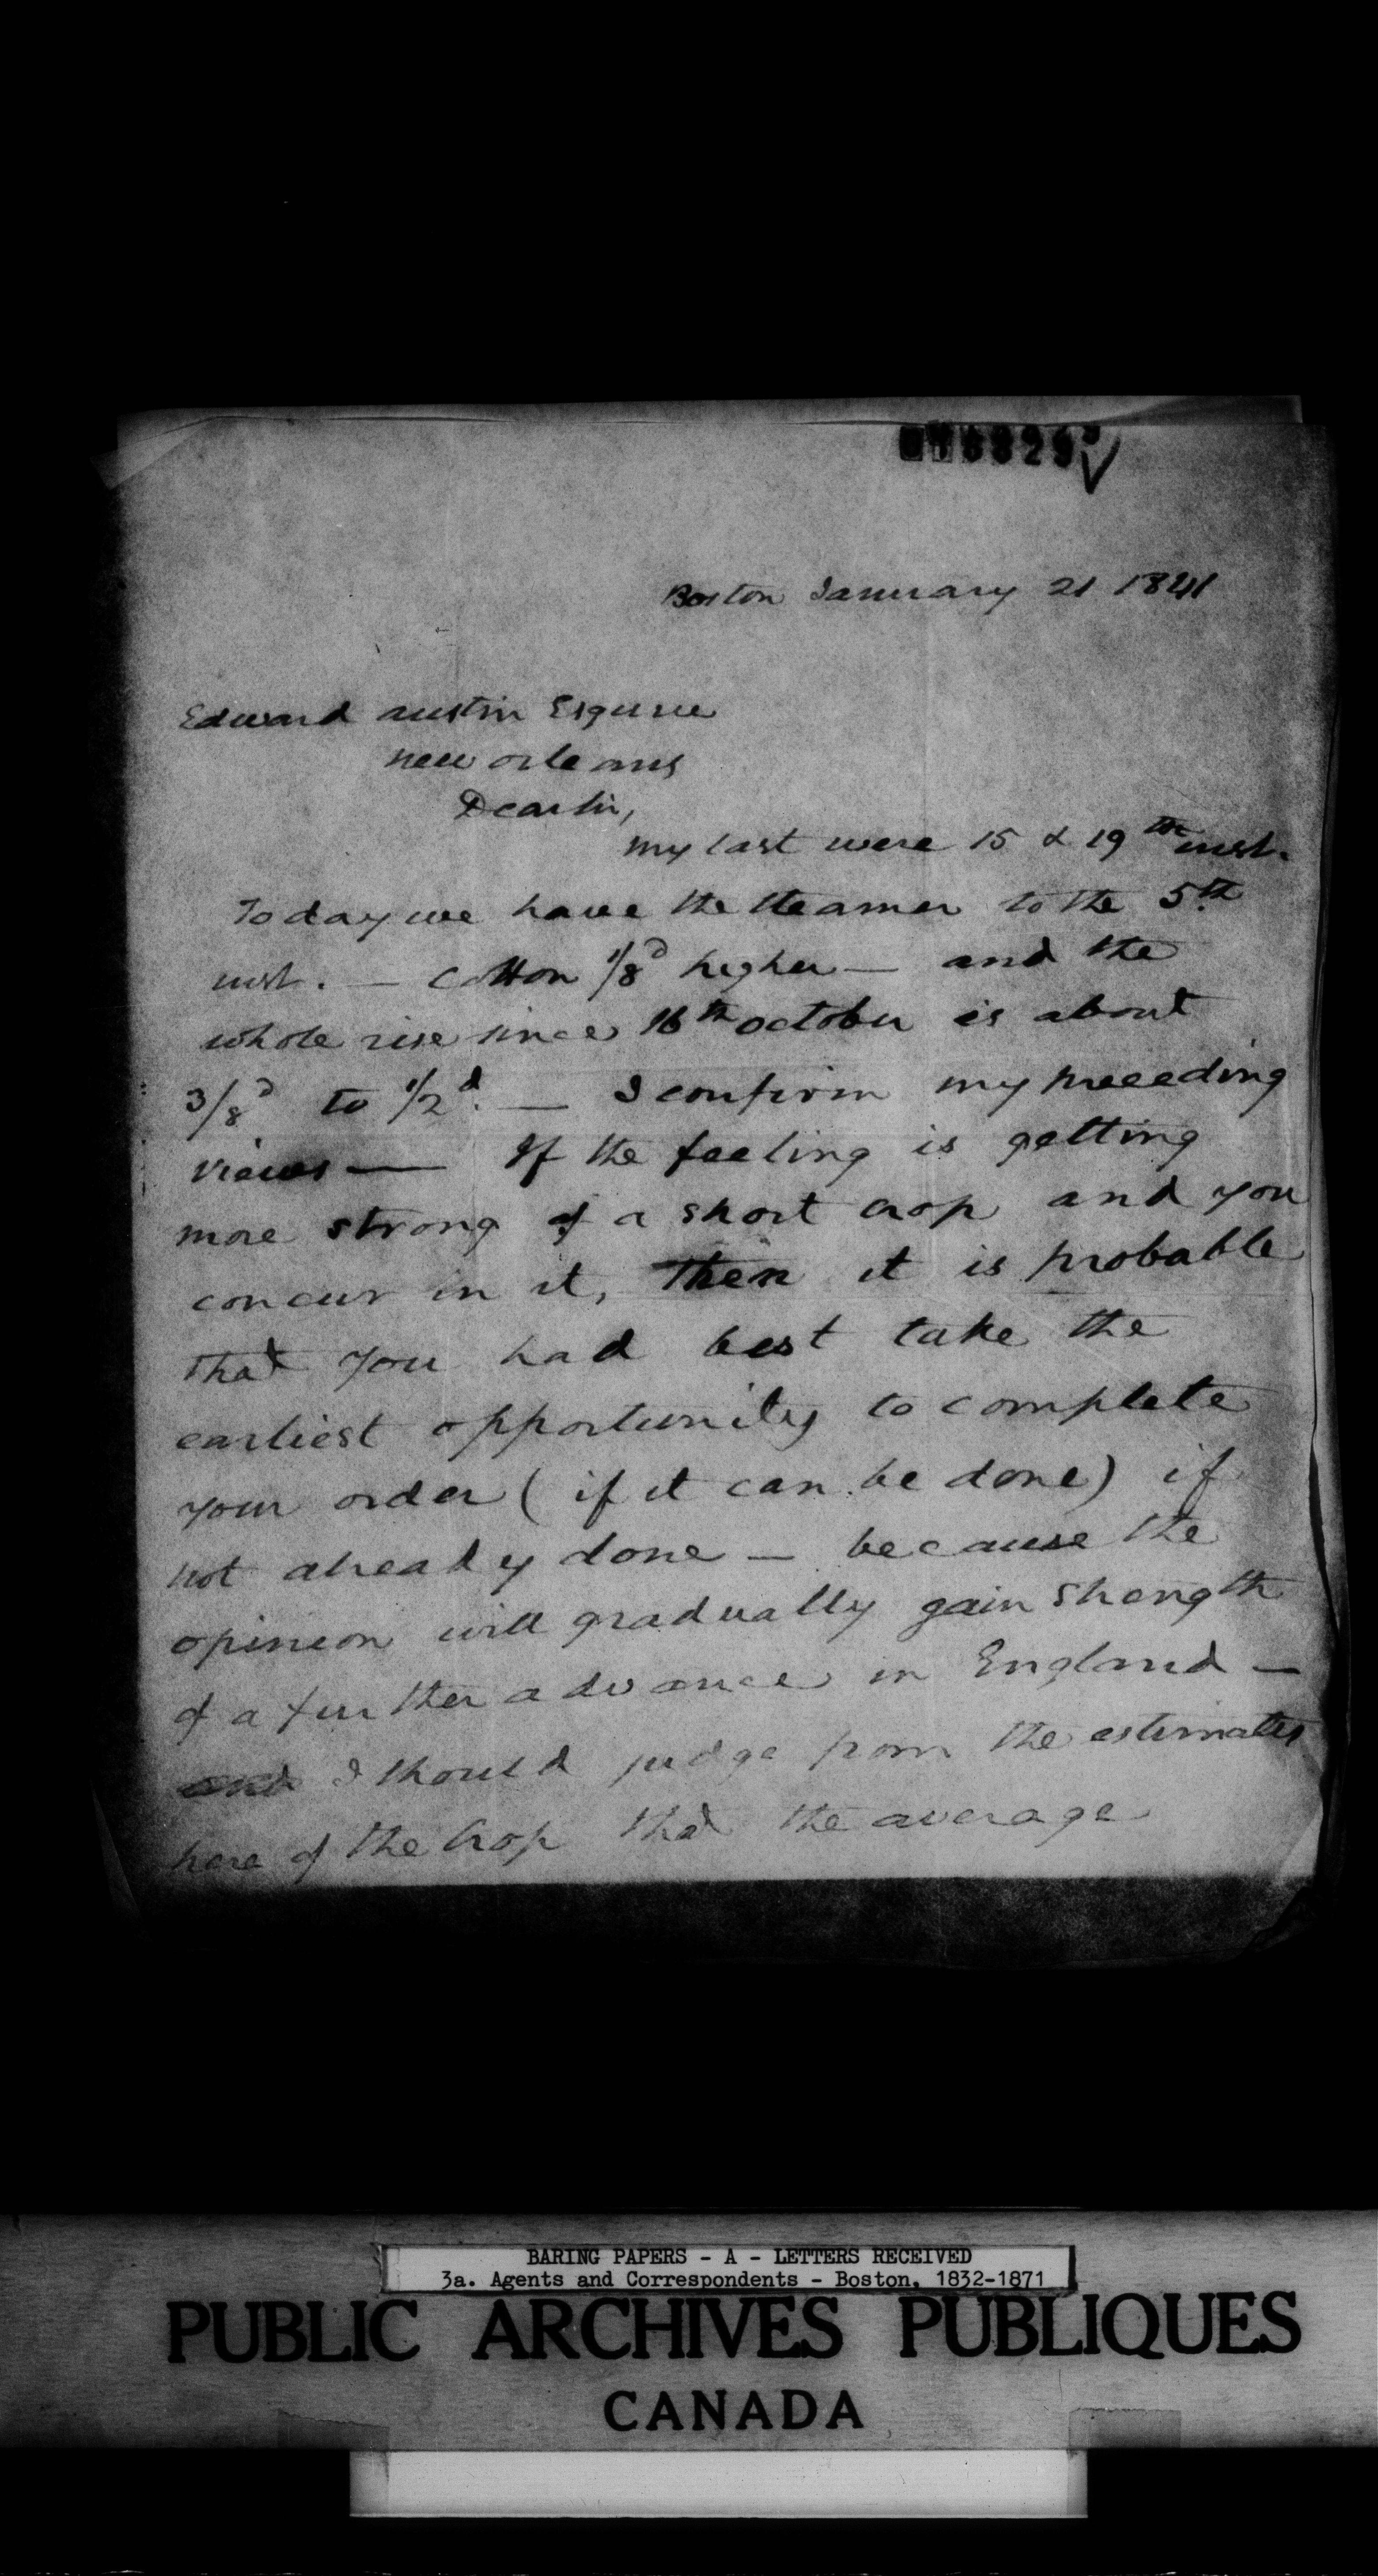 Boston January 21 1841
Edward Austin Esquire
New Orleans
Dear Sir,
My last were 15 & 19th inst.
Today we have the steamer to the 5th
inst. — Cotton 1/8d higher — and the
whole rise since 16th October is about
3/8d to 1/2d. — I confirm my preceeding
views — If the feeling is getting
more strong of a short crop and you
concur in it, then it is probable
that you had best take the
earliest opportunity to complete
your order (if it can be done) if
not already done — because the
opinion will gradually gain strength
of a further advance in England —
and I should judge from the estimates
here of the crop that the average
BARING PAPERS - A - LETTERS RECEIVED
3a. Agents and Correspondents - Boston, 1832-1871
PUBLIC ARCHIVES PUBLIQUES
CANADA